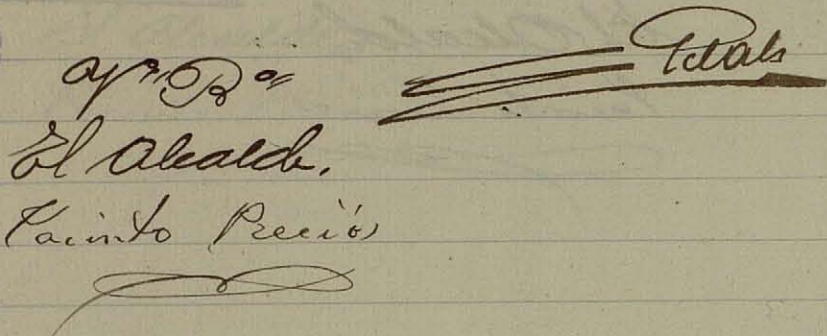 Vº Bº
El Alcalde.
Jacinto Preciós